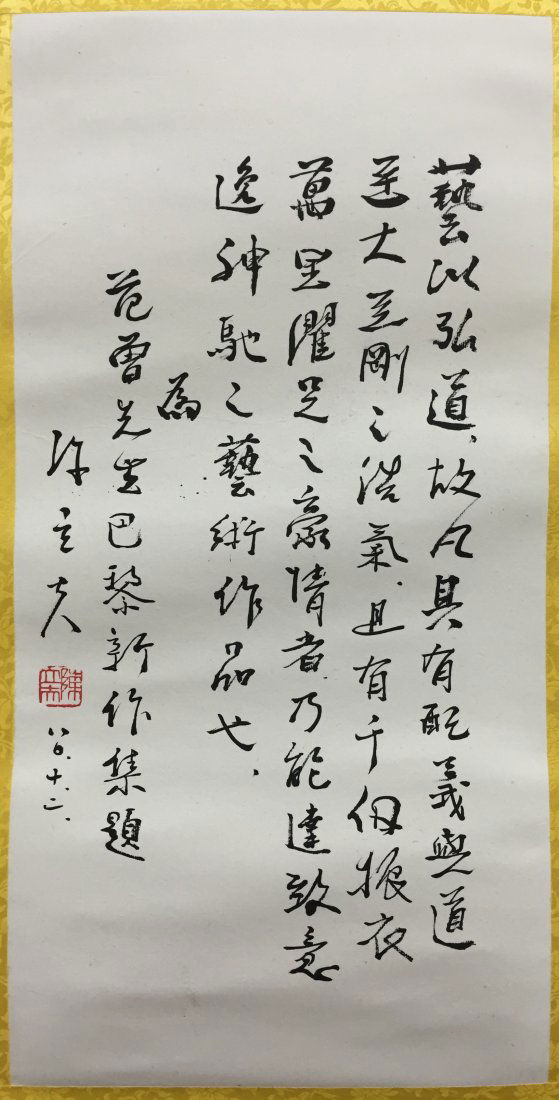 藝以弘道、故凡具有配義與道
至大至剛之浩氣、且有千仞振衣
萬里濯足之豪情者、乃能達致意
逸神馳之藝術作品也、
為
范曾先生巴黎新作集題
陳立夫
八〇、十、二、